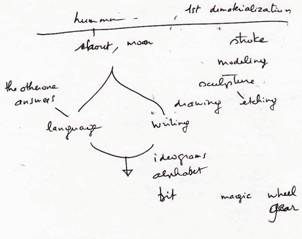 human 1st dematerialization
shout, moan stroke
modeling
sculpture
the other one answers drawing etching
language writing
ideograms
alphabet
bit magic wheel
gear